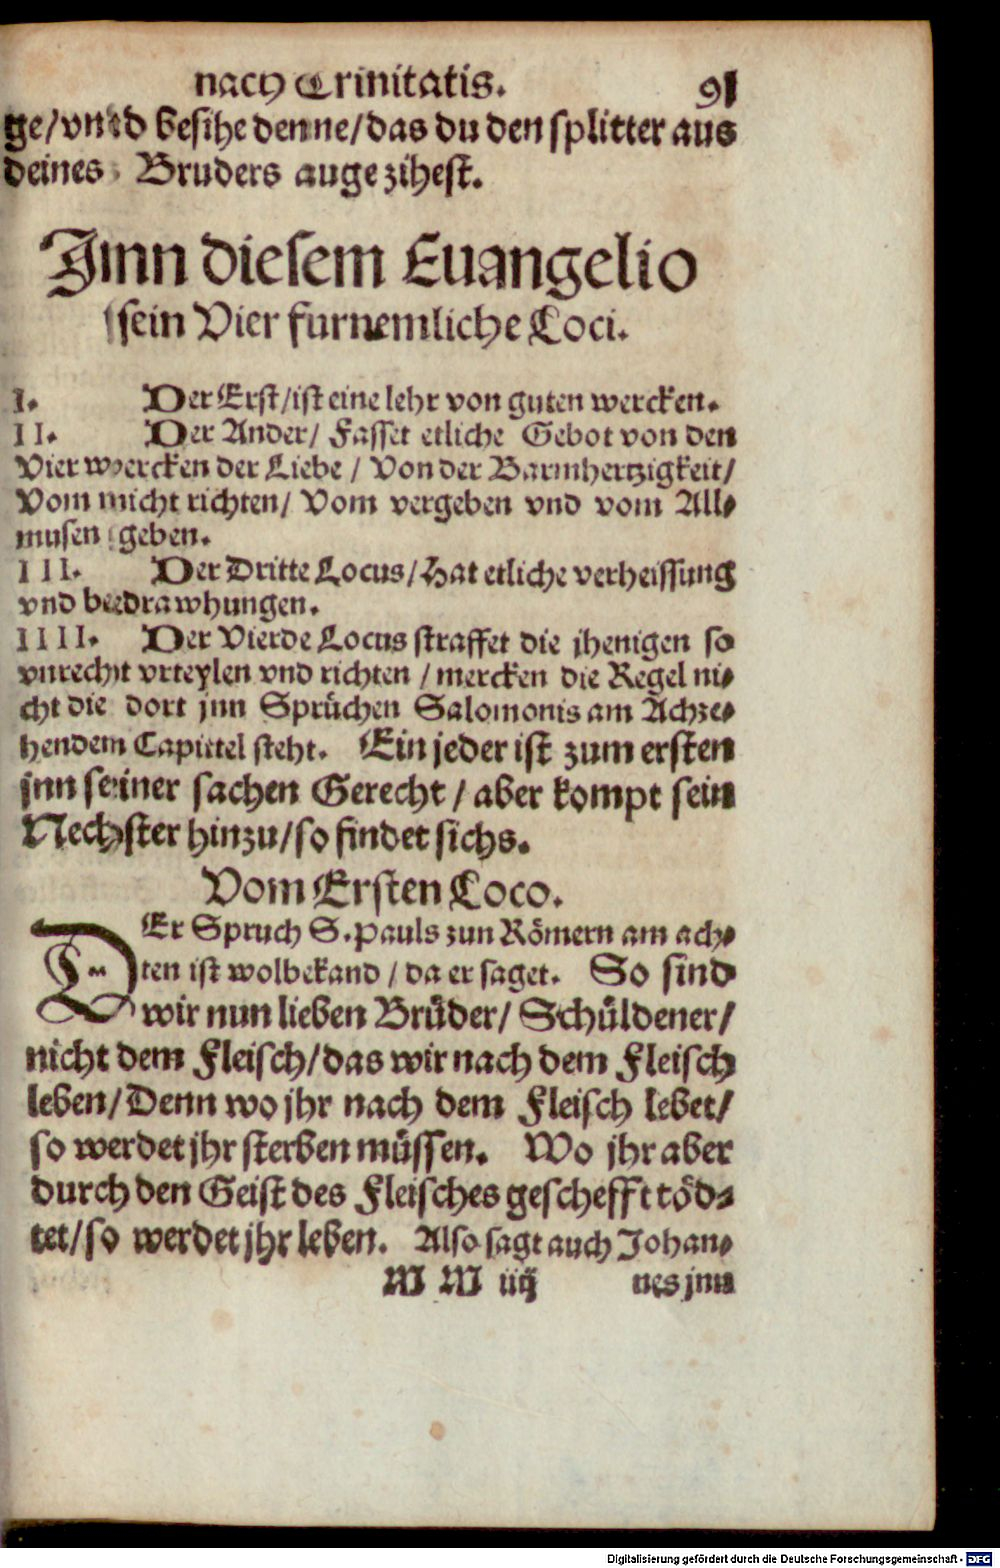 nach Trinitatis. 91
ge/vnd besihe denne/das du den splitter aus
deines Bruders auge zihest.
Jnn diesem Euangelio
sein Vier furnemliche Loci.
I. Der Erst/ist eine lehr von guten wercken.
II. Der Ander/ Fasset etliche Gebot von den
Vier wercken der Liebe / Von der Barmhertzigkeit/
Vom nicht richten/ Vom vergeben vnd vom All⸗
musen geben.
III. Der Dritte Locus/Hat etliche verheissung
vnd bedrawhungen.
IIII. Der Vierde Locus straffet die jhenigen so
vnrecht vrteylen vnd richten / mercken die Regel ni⸗
cht die dort jnn Sprüchen Salomonis am Achze⸗
hendem Capittel steht. Ein jeder ist zum ersten
jnn seiner sachen Gerecht / aber kompt sein
Nechster hinzu/so findet sichs.
Vom Ersten Loco.
DEr Spruch S. Pauls zun Römern am ach⸗
ten ist wolbekand / da er saget. So sind
wir nun lieben Brüder/ Schüldener/
nicht dem Fleisch/das wir nach dem Fleisch
leben/Denn wo jhr nach dem Fleisch lebet/
so werdet jhr sterben müssen. Wo jhr aber
durch den Geist des Fleisches geschefft töd⸗
tet/so werdet jhr leben. Also sagt auch Johan⸗
M M iiij nes jnn
Digitalisierung gefördert durch die Deutsche Forschungsgemeinschaft - DFG